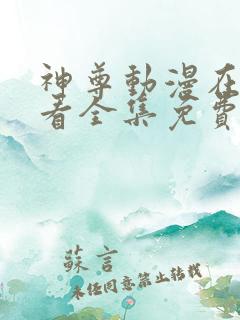 神尊動漫在
看全集免費
蘇言
未任同意禁止转载